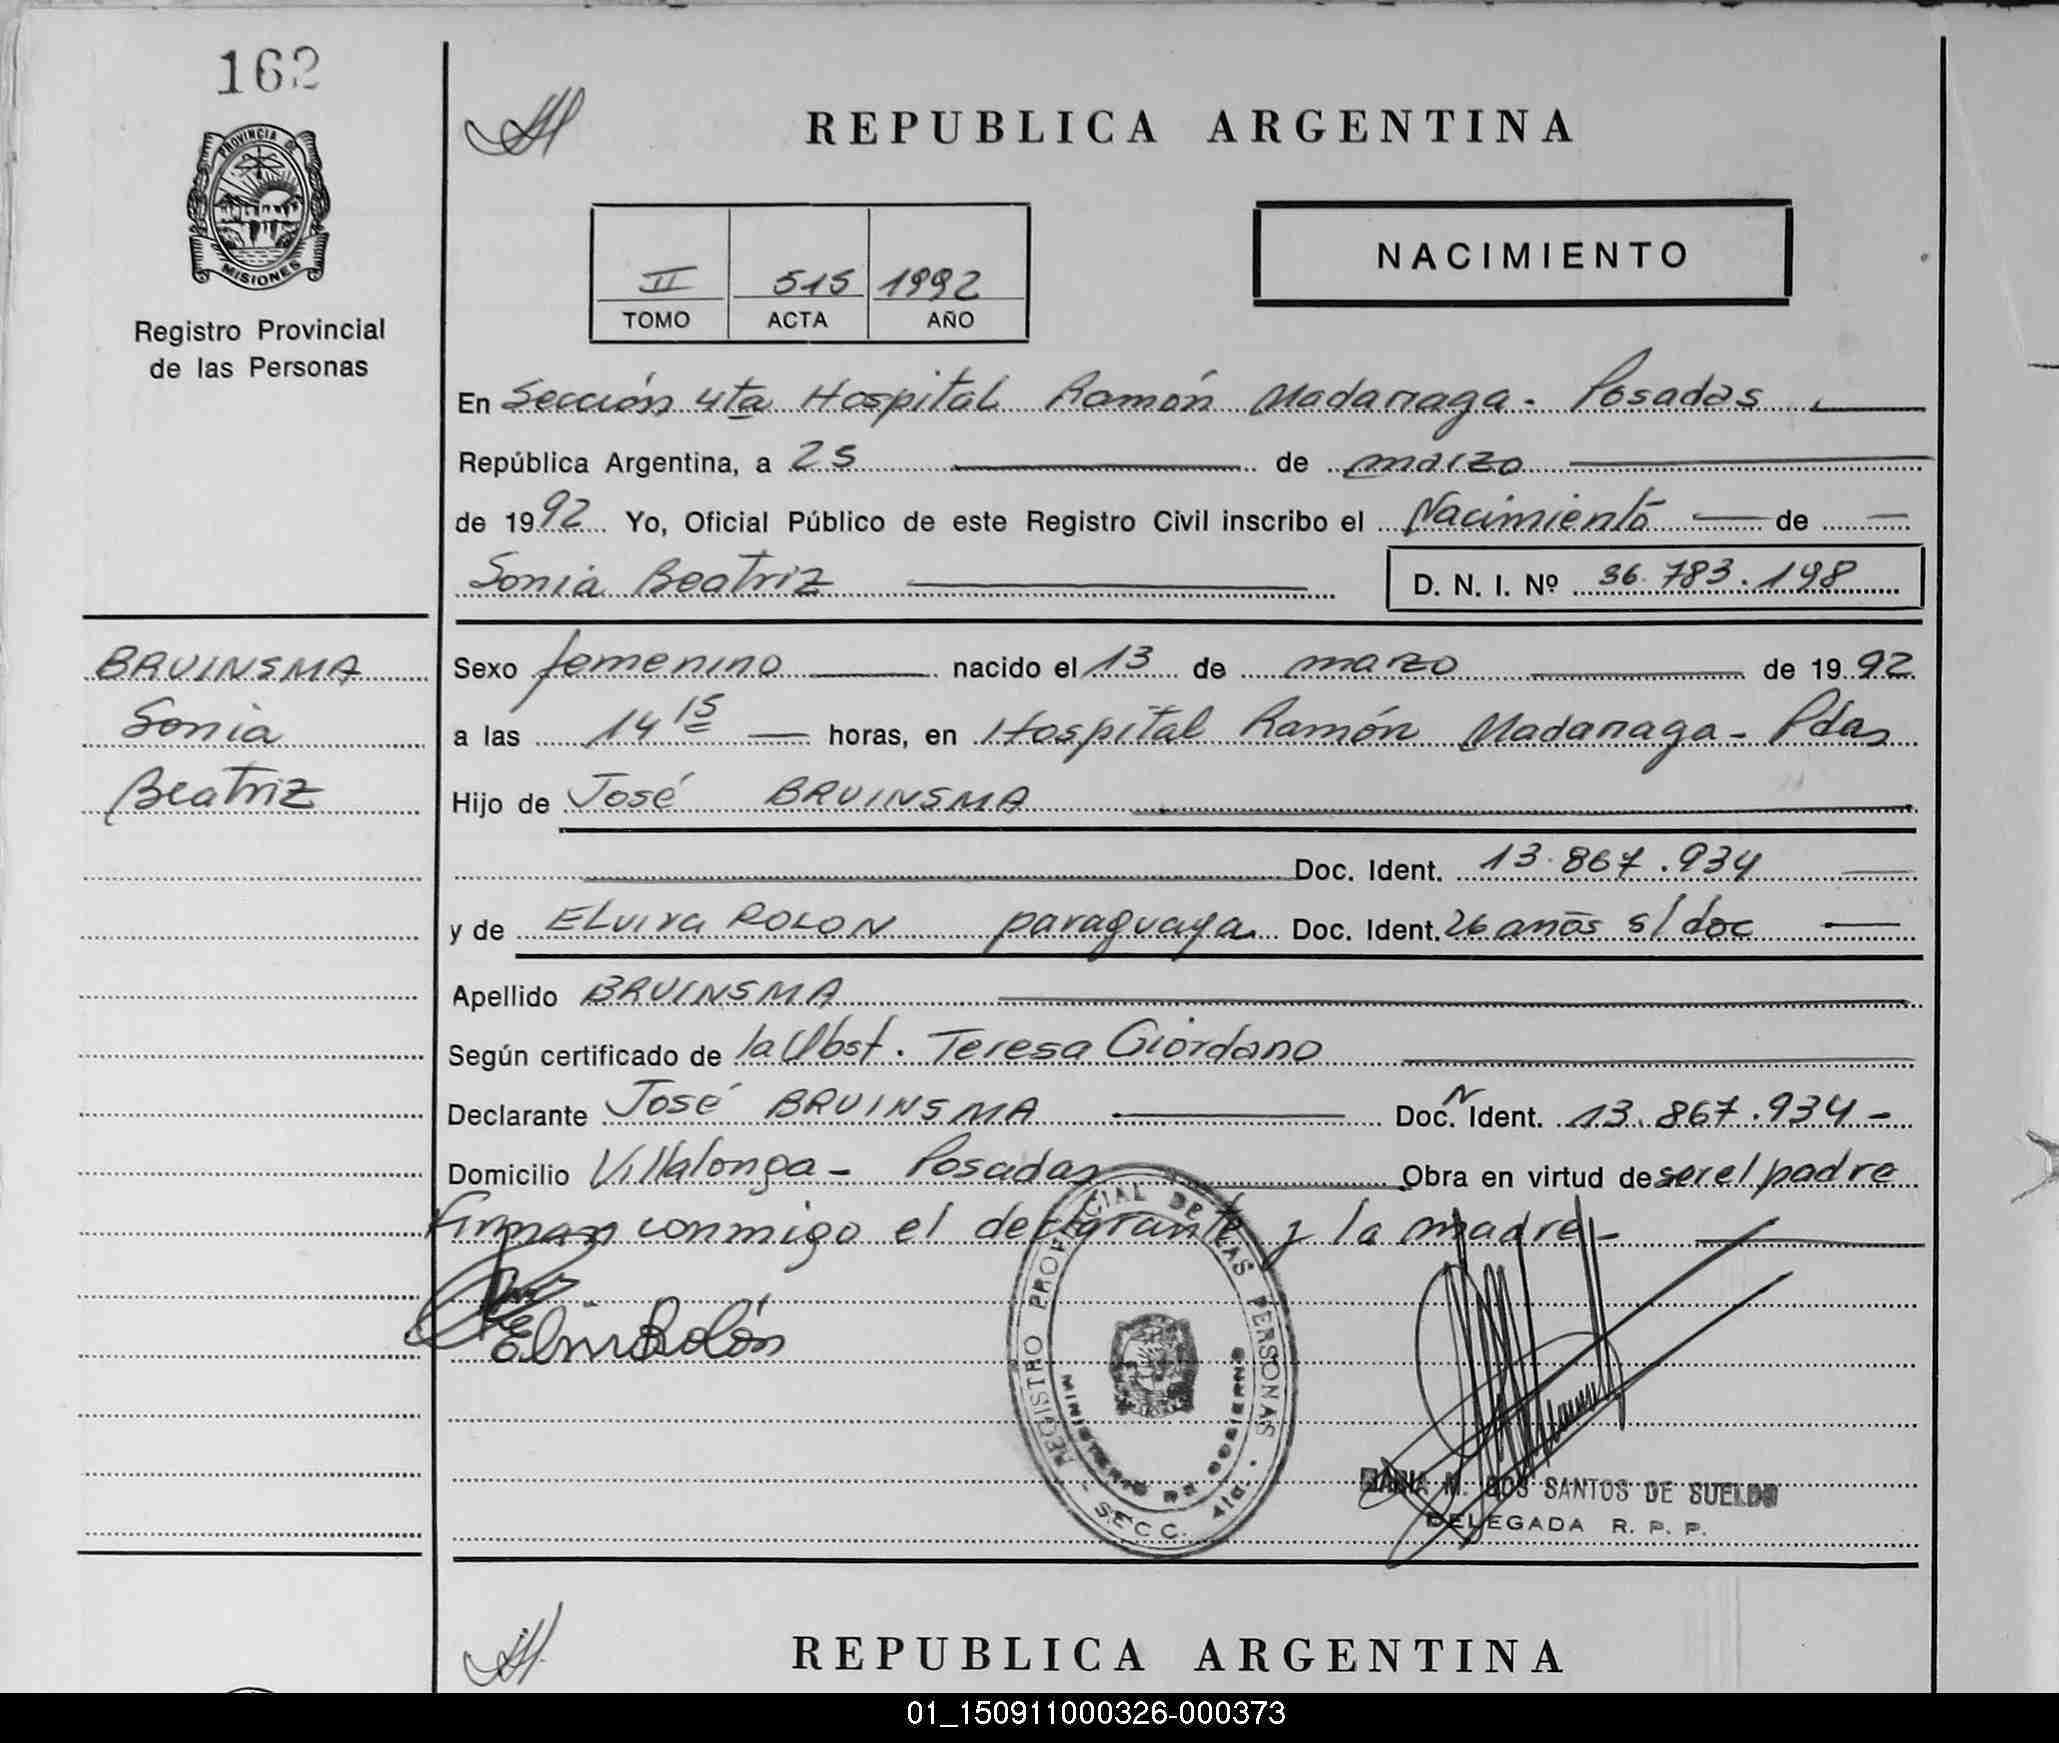 162
PROVINCIA DE
MISIONES
Registro Provincial
de las Personas
REPUBLICA ARGENTINA
II 515 1992
TOMO ACTA AÑO
NACIMIENTO
En Sección 4ta Hospital Ramón Madariaga - Posadas
República Argentina, a 25 de marzo
de 1992 Yo, Oficial Público de este Registro Civil inscribo el Nacimiento de
Sonia Beatriz D. N. I. Nº 36.783.198
BRUINSMA
Sonia
Beatriz
Sexo femenino nacido el 13 de marzo de 1992
a las 14 15 horas, en Hospital Ramón Madariaga - Pdas
Hijo de José BRUINSMA
Doc. Ident. 13.867.934
y de ELvira ROLON paraguaya Doc. Ident. 26 años s/doc
Apellido BRUINSMA
Según certificado de la Obst. Teresa Giordano
Declarante José BRUINSMA Doc. N Ident. 13.867.934-
Domicilio Villalonga - Posadas Obra en virtud de ser el padre
Firman conmigo el declarante y la madre-
Elvira Rolón
REGISTRO PROVINCIAL DE LAS PERSONAS
MINISTERIO DE GOBIERNO
SECC. 4ta.
MARIA M. DOS SANTOS DE SUELDO
DELEGADA R. P. P.
REPUBLICA ARGENTINA
01_150911000326-000373